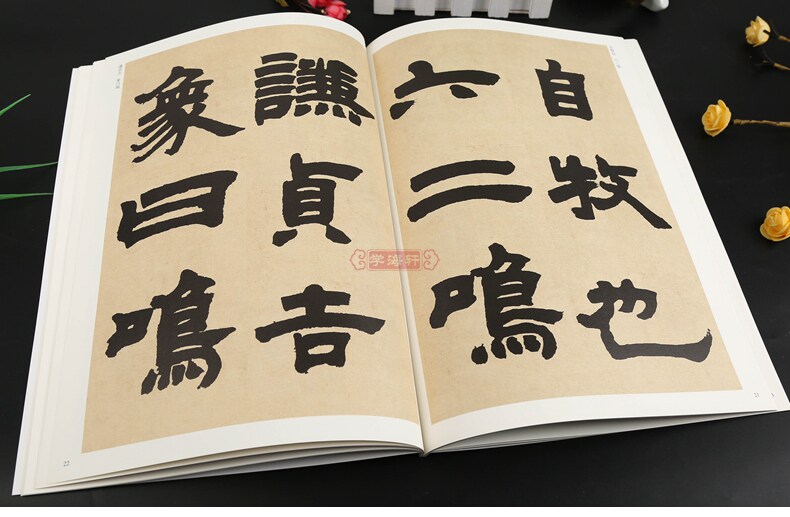 自牧也
六二鳴
謙貞吉
象曰鳴
学海轩
21
22